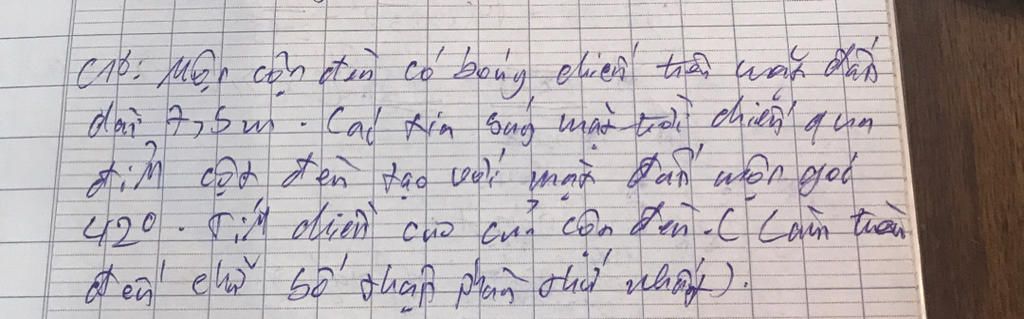 C16: Một cột đèn có bóng chiếu trên mặt đất
dài 7,5m. Các tia sáng mặt trời chiếu qua
đỉnh cột đèn tạo với mặt đất một góc
42°. Tính chiều cao của cột đèn. (Làm tròn
đến chữ số thập phân thứ nhất).